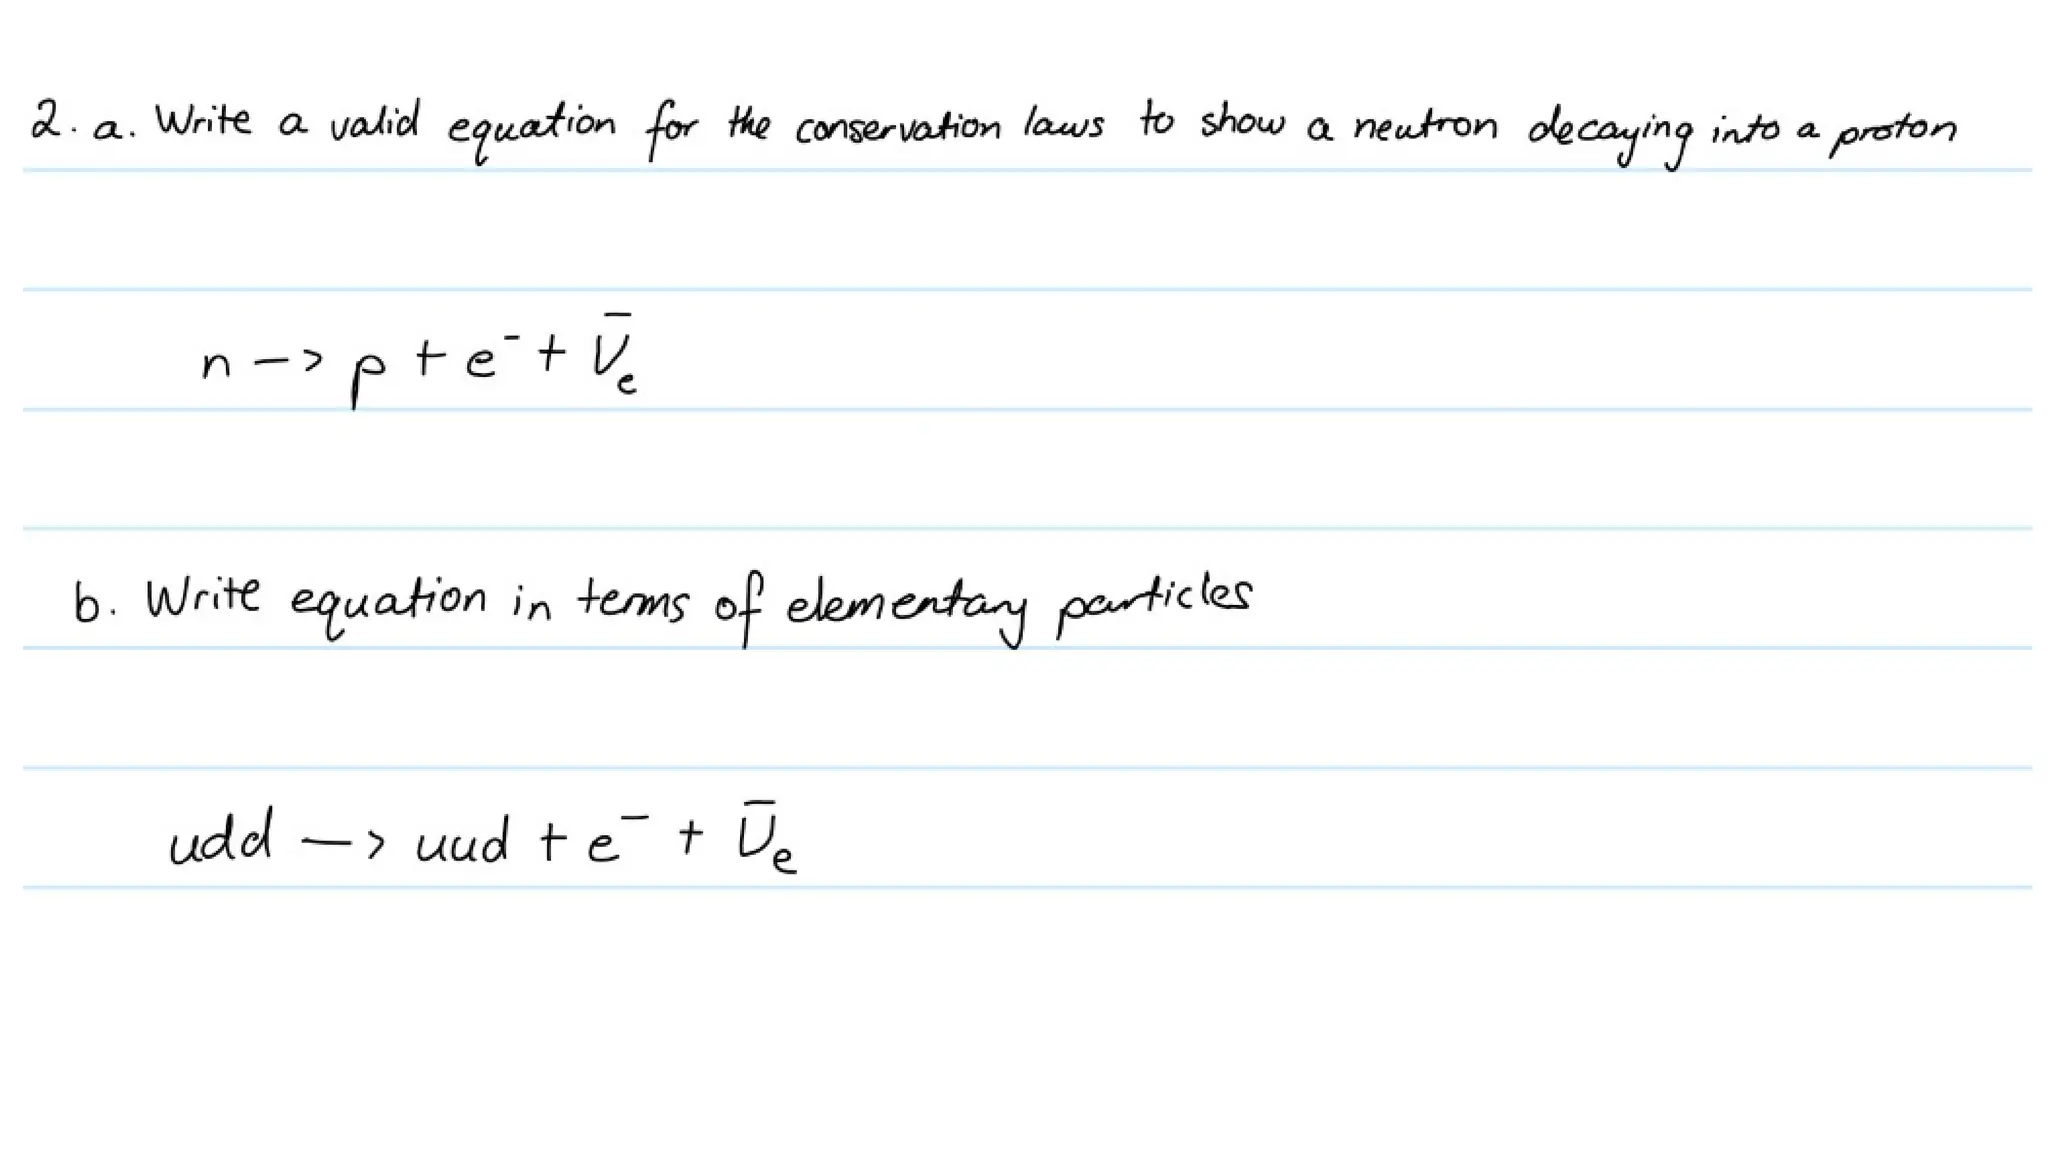 2. a. Write a valid equation for the conservation laws to show a neutron decaying into a proton
n -> p + e⁻ + ν̄ₑ
b. Write equation in terms of elementary particles
udd -> uud + e⁻ + ν̄ₑ